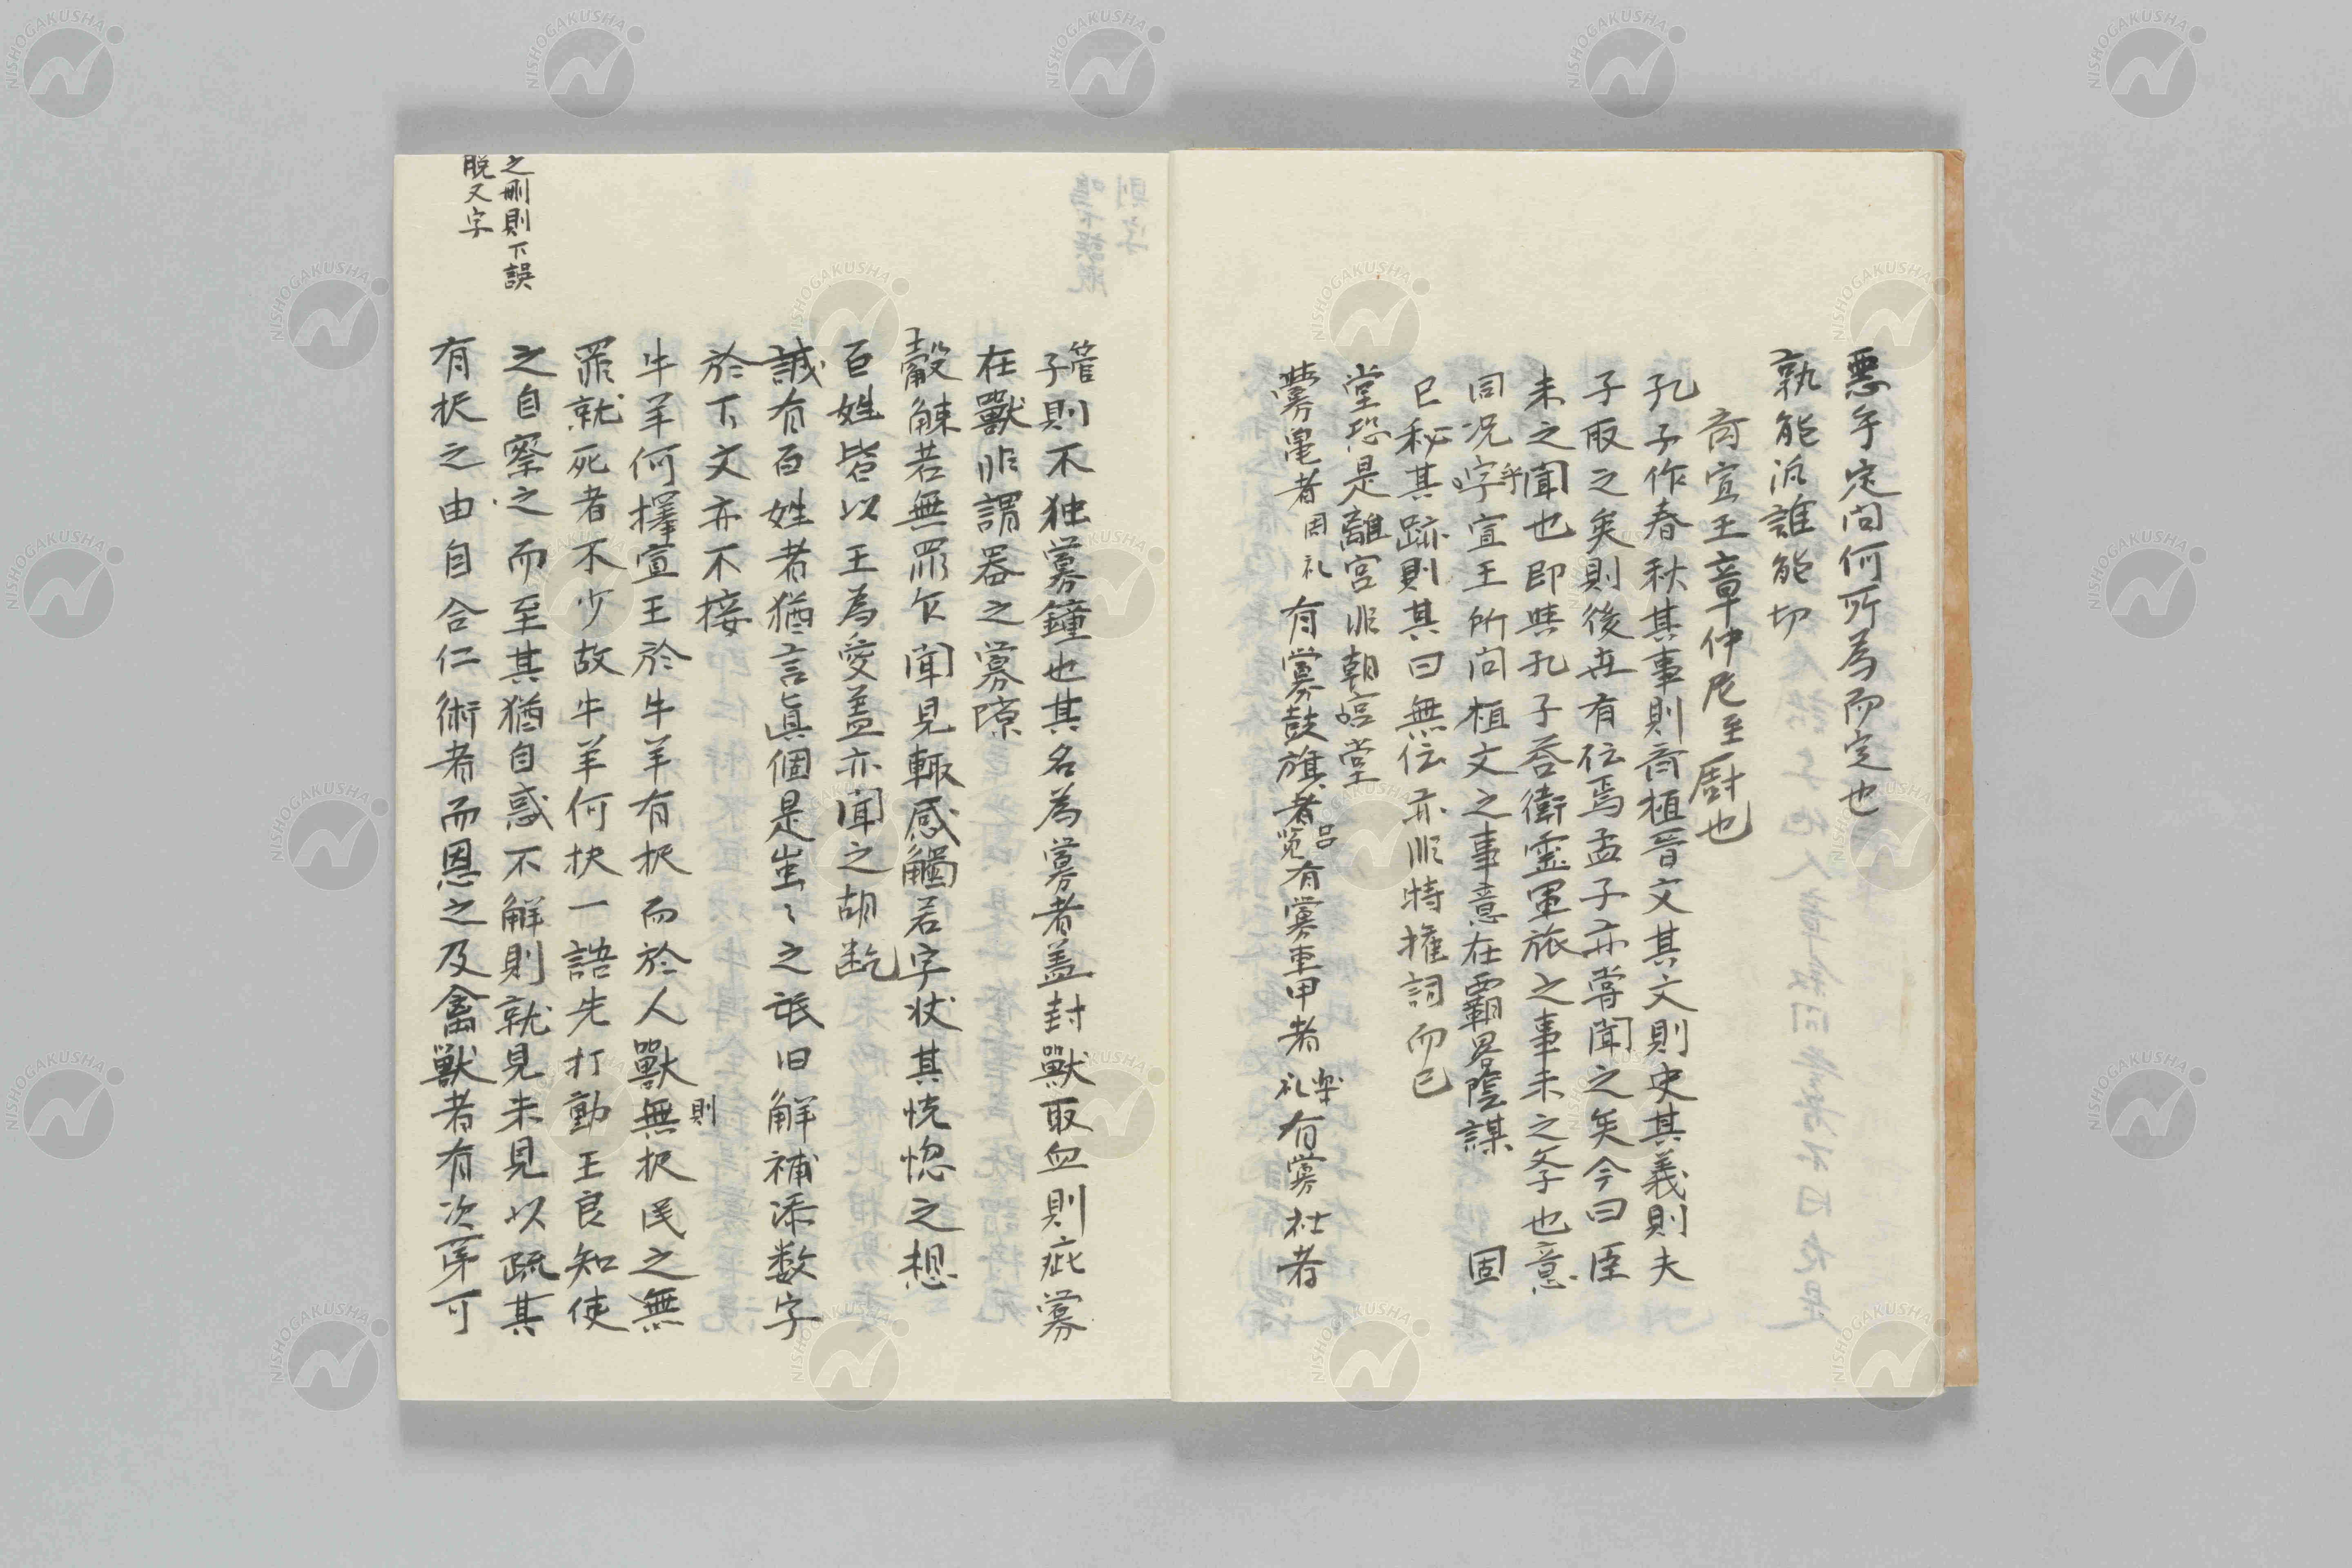 悪乎定问何所為而定也
孰能汎誰能切
斉宣王章仲尼至厨也
孔子作春秋其事則斉桓晋文其文則史其義則夫
子取之矣則後世有伝焉孟子亦嘗聞之矣今曰臣
未之聞也即與孔子荅衛霊軍旅之事未之学也意
同况字乎宣王所问桓文之事意在覇畧陰謀 固
已秘其跡則其曰無伝亦非特摧詞而已
堂恐是離宮非朝宮堂
釁亀者周礼有釁鼓旗者呂覧有釁車甲者楽礼有釁社者
管子則不独釁鐘也其名為釁者盖封獣取血則疵釁
在獣非謂器之釁隙
觳觫若無罪仄聞見輙感觸若字状其恍惚之想
百姓皆以王為愛盖亦聞之胡齕
誠有百姓者猶言眞個是蚩〻之氓旧解補添数字
於下文亦不接
牛羊何擇宣王於牛羊有択而於人獣無択民之無
則
罪就死者不少故牛羊何抉一語先打動王良知使
之自察之而至其猶自惑不解則就見未見以疏其
有択之由自合仁術者而恩之及禽獣者有次苐可
之刪則下誤
脱又字
NISHOGAKUSHA